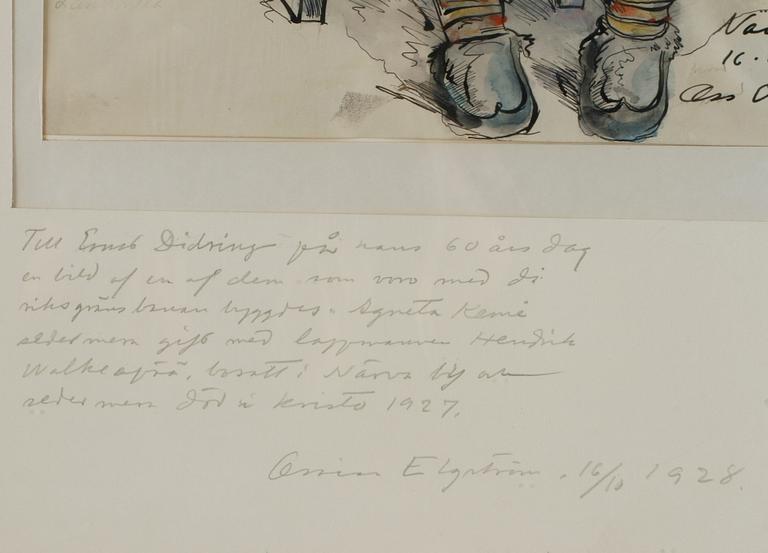 Nä
16.
Oss
Till Ernst Didring på hans 60 års dag
en bild af en af dem som voro med då
riksgränsbanan byggdes. Agneta
sedermera gift med lappmannen Hendrik
bosatt i by och
sedermera död i Kristo 1927.
Ossian Elgström. 16/10 1928.